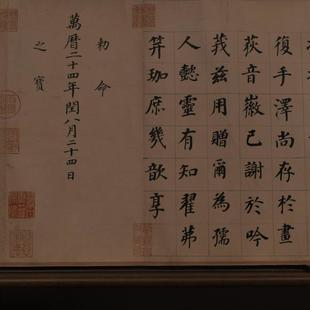 復手澤尚存於畫
荻音徽已謝於吟
莪茲用贈爾為孺
人懿靈有知翟茀
笄珈庶幾歆享
勅命
萬曆二十四年閏八月二十四日
之寶